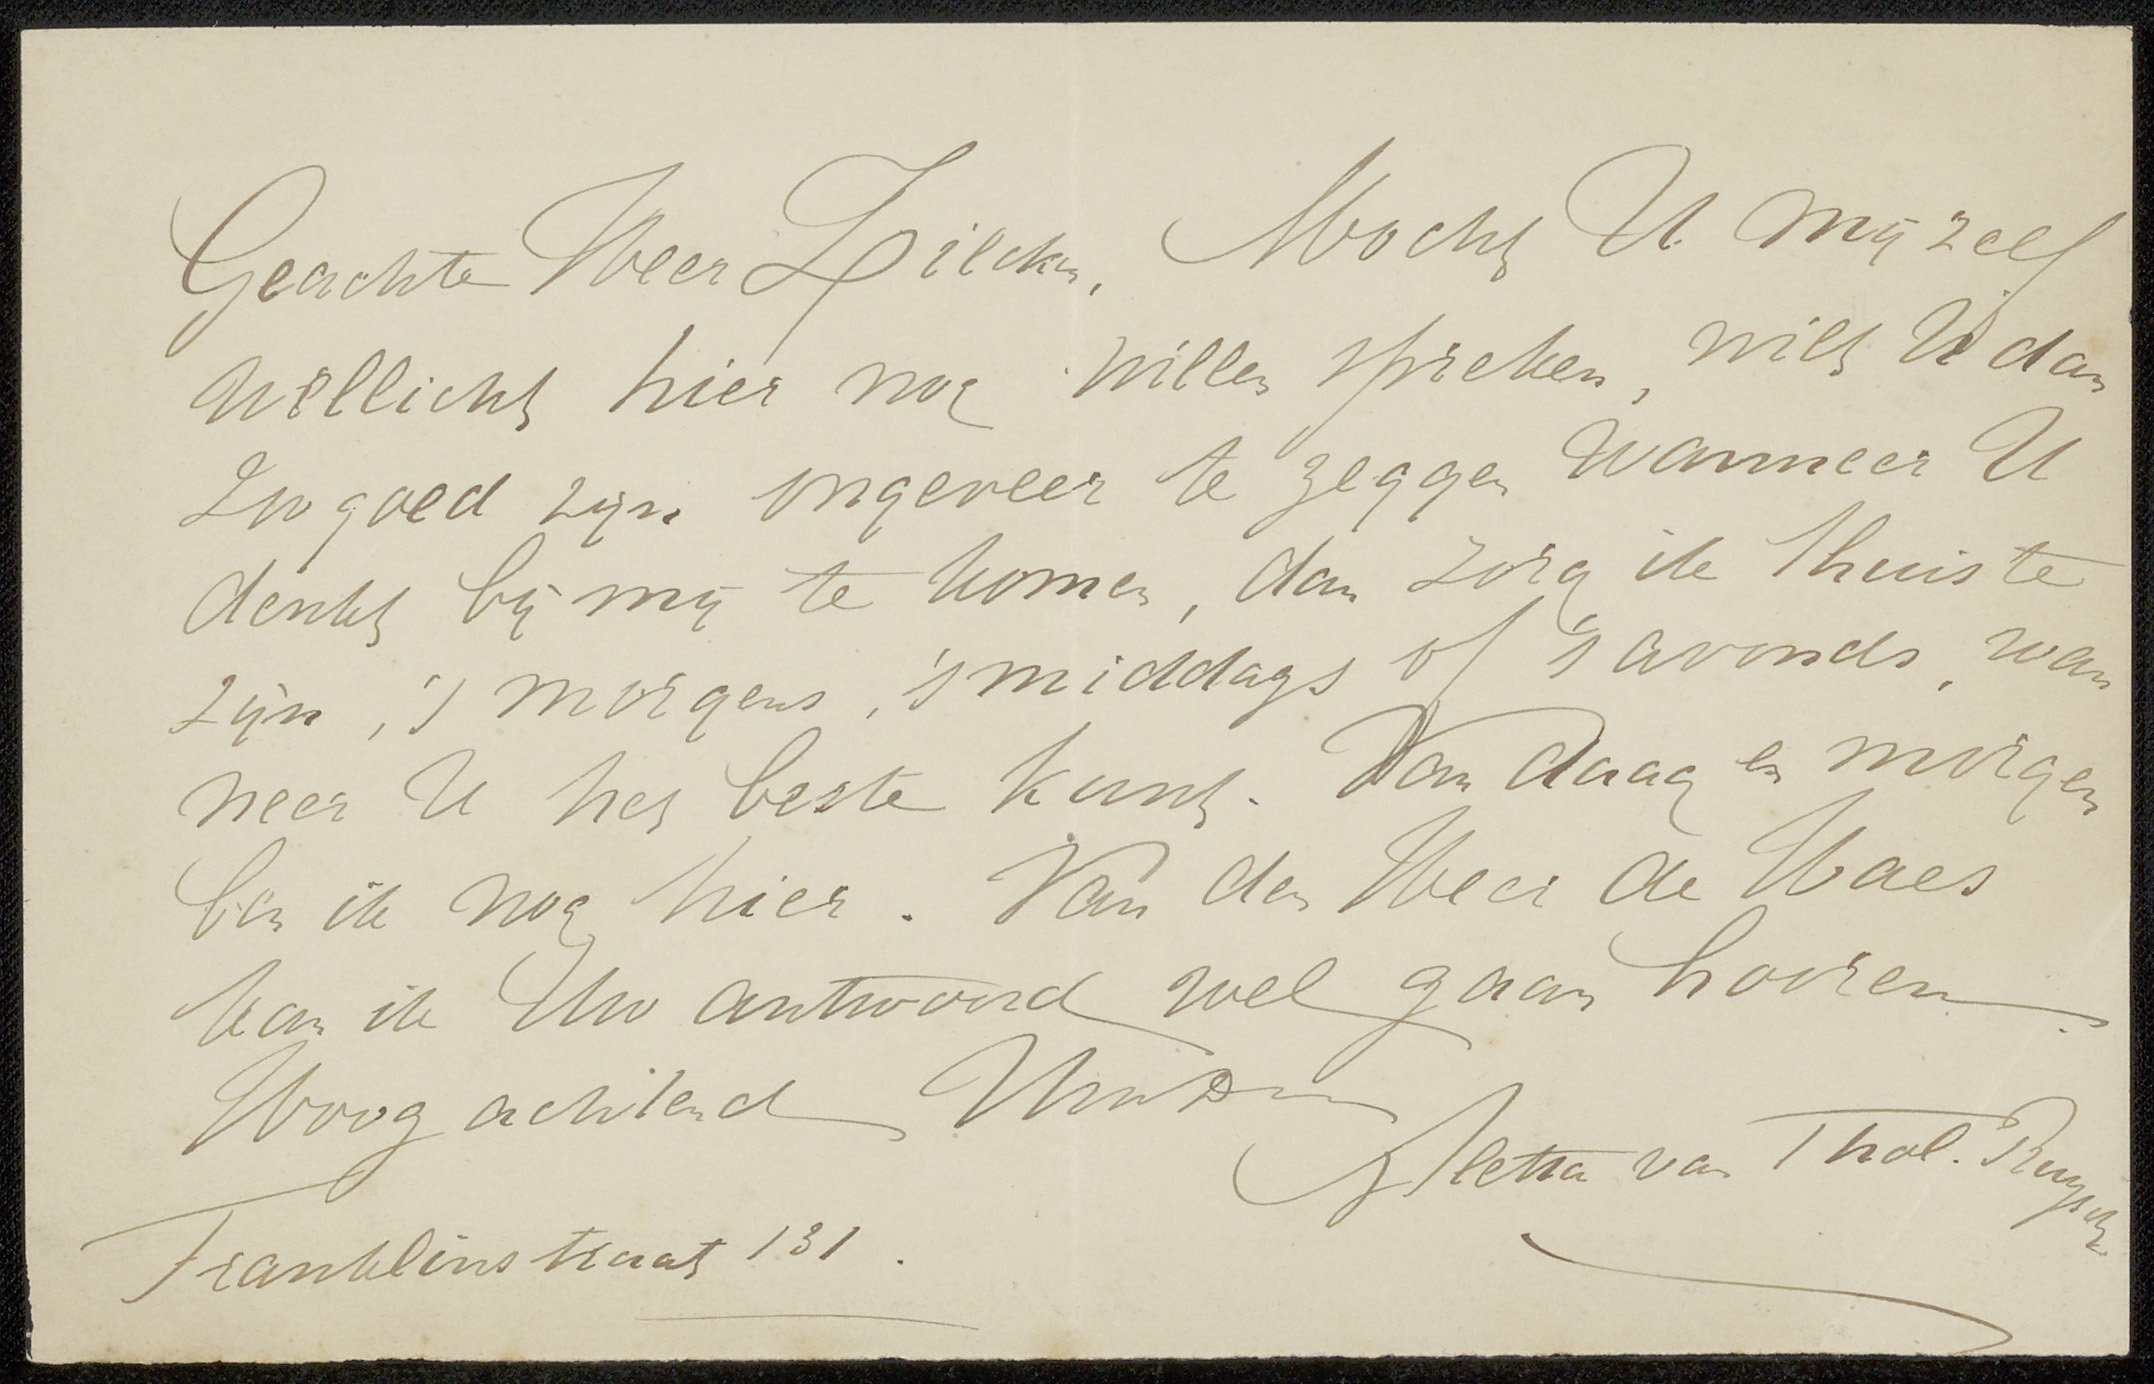 Geachte Heer Zilcken, Mocht U mij zelf
wellicht hier nog willen spreken, wilt U dan
zoo goed zijn ongeveer te zeggen wanneer U
denkt bij mij te komen, dan zorg ik thuis te
zijn, 's morgens, 's middags of 's avonds, wan
neer U het beste kunt. Van daag en morgen
ben ik nog hier. Van den Heer de Haes
kan ik Uw antwoord wel gaan hooren.
Hoog achtend UwDn
Aletta van Thol. Ruysch
Franklinstraat 131.